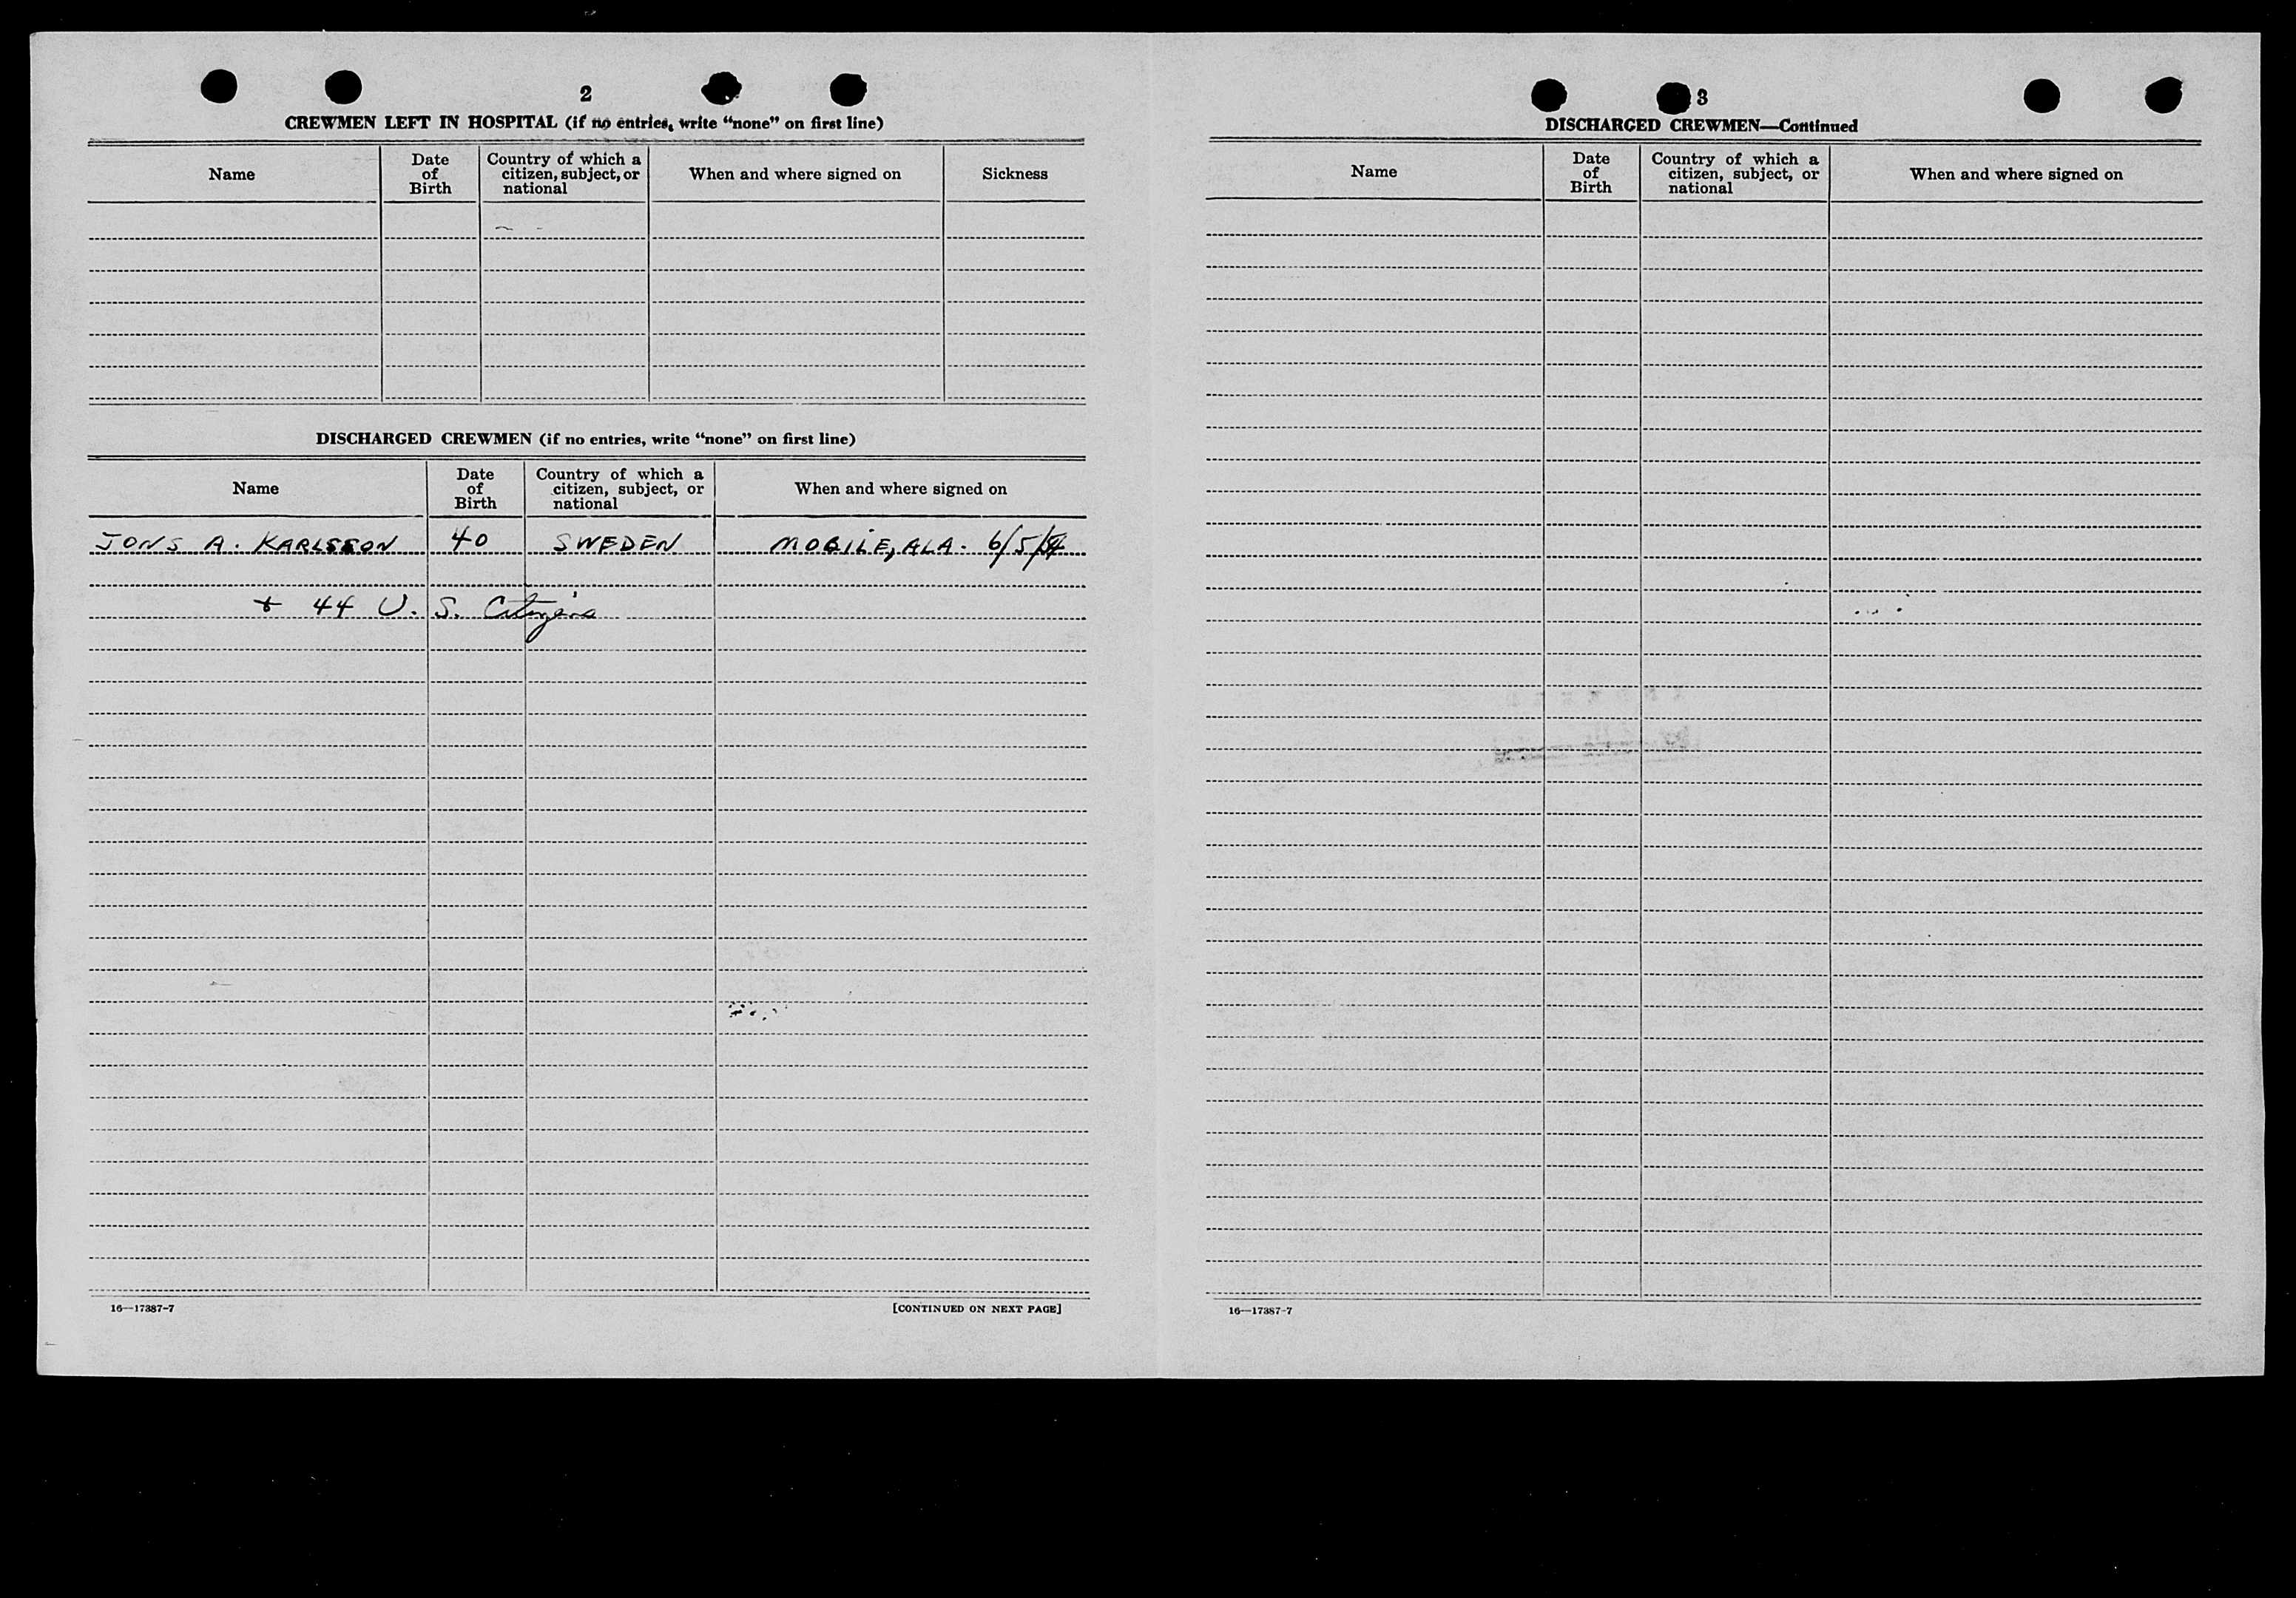 2
CREWMEN LEFT IN HOSPITAL (if no entries, write “none” on first line)
Name
Date of Birth
Country of which a citizen, subject, or national
When and where signed on
Sickness
DISCHARGED CREWMEN (if no entries, write “none” on first line)
Name
Date of Birth
Country of which a citizen, subject, or national
When and where signed on
JONS A. KARLSSON 40 SWEDEN MOBILE, ALA. 6/5/54
+ 44 U. S. Citizens
16—17387-7
[CONTINUED ON NEXT PAGE]
3
DISCHARGED CREWMEN—Continued
Name
Date of Birth
Country of which a citizen, subject, or national
When and where signed on
16—17387-7